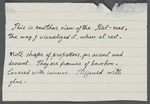 This is another view of the
the way I visualized it, when at rest.
Note shape of propellors, for ascent and
descent. They are frames of bamboo -
Covered with canvas. Stiffened with
glue -